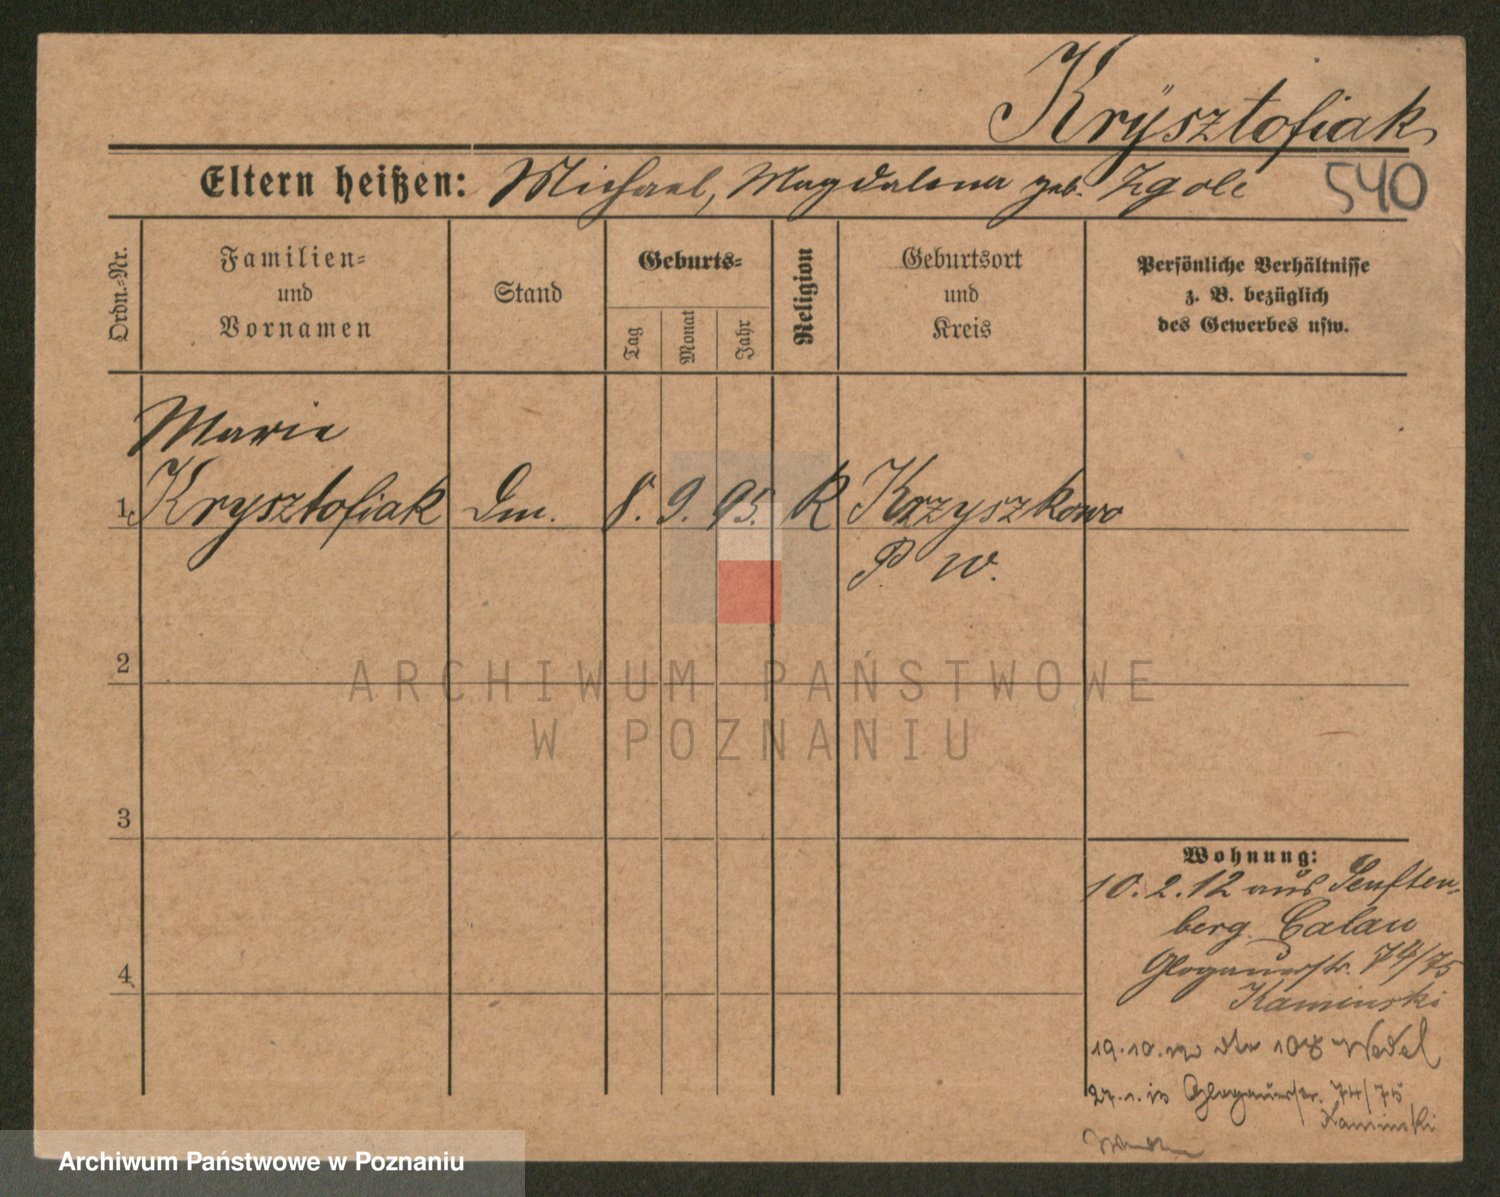 Krÿsztofiak
Eltern heißen: Michael, Magdalena geb. Zgole
540
Ordn.=Nr.
Familien=
und
Vornamen
Stand
Geburts=
Tag
Monat
Jahr
Religion
Geburtsort
und
Kreis
Persönliche Verhältnisse
z. B. bezüglich
des Gewerbes usw.
Marie
1. Krysztofiak Dm. 8. 9. 95. K Krzyszkowo
P. W.
2
3
4
ARCHIWUM PAŃSTWOWE
W POZNANIU
Wohnung:
10.2.12 aus Senften-
berg Calau
Glogauerstr. 74/75
Kaminski
19.10. 108
Glogauerstr. 74/75
Kaminski
Archiwum Państwowe w Poznaniu